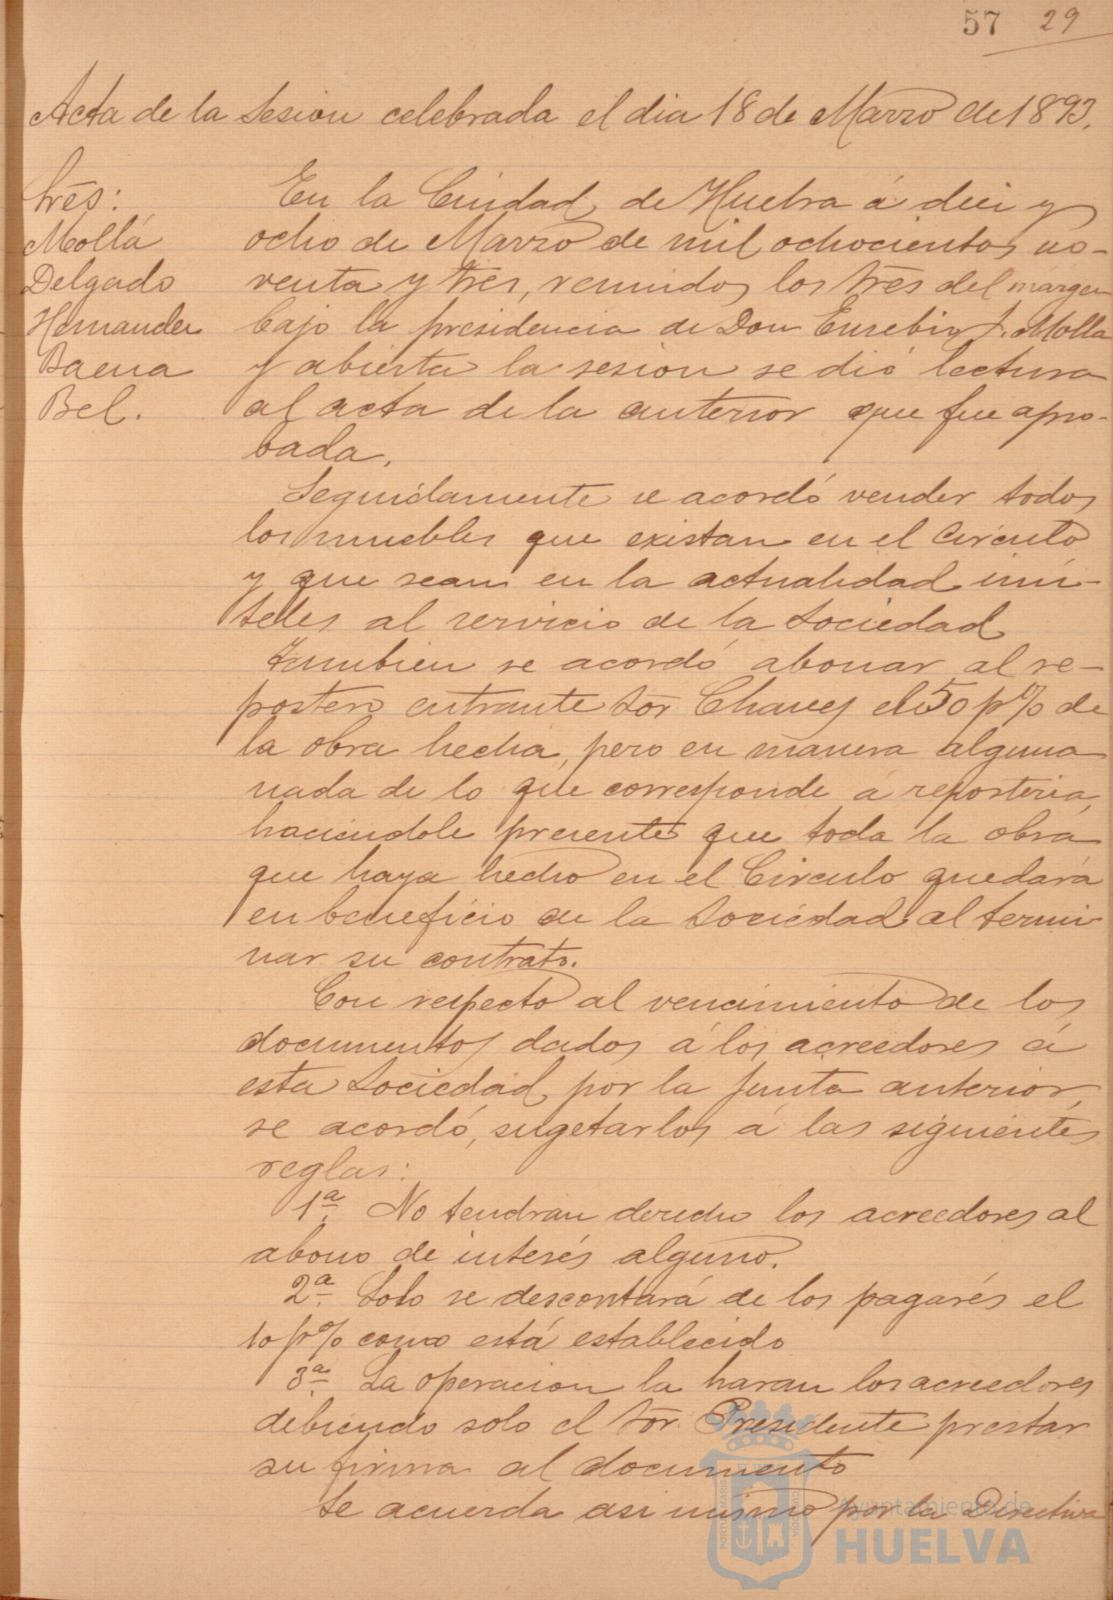 57 29
Acta de la Sesion celebrada el dia 18 de Marzo de 1893.
Srēs:
Mollá
Delgado
Hernandez
Baena
Bel.
En la Ciudad, de Huelva á diez y
ocho de Marzo de mil ochocientos no-
venta y tres, reunidos los Srēs del márgen
bajo la presidencia de Don Eusebio J. Molla
y abierta la sesion se dió lectura
al acta de la anterior que fue apro-
bada.
Seguidamente se acordó vender todos
los muebles que existan en el Circulo
y que sean en la actualidad inú-
teles al servicio de la Sociedad
Tambien se acordó abonar al re-
postero entrante Sōr Chavez el 50 p% de
la obra hecha, pero en manera alguna
nada de lo que corresponde á reposteria,
haciendole presente que toda la obra
que haya hecho en el Circulo quedará
en beneficio de la Sociedad al termi-
nar su contrato.
Con respecto al vencimiento de los
documentos dados á los acreedores á
esta Sociedad, por la Junta anterior,
se acordó, sugetarlos á las siguientes
reglas:
1ª. No tendran derecho los acreedores al
abono de interés alguno.
2ª. Solo se descontará de los pagarés el
10 p% como está establecido
3ª. La operacion la haran los acreedores
debiendo solo el Sōr. Presidente prestar
su firma al documento
Se acuerda asi mismo por la Directiva
Ayuntamiento de
HUELVA